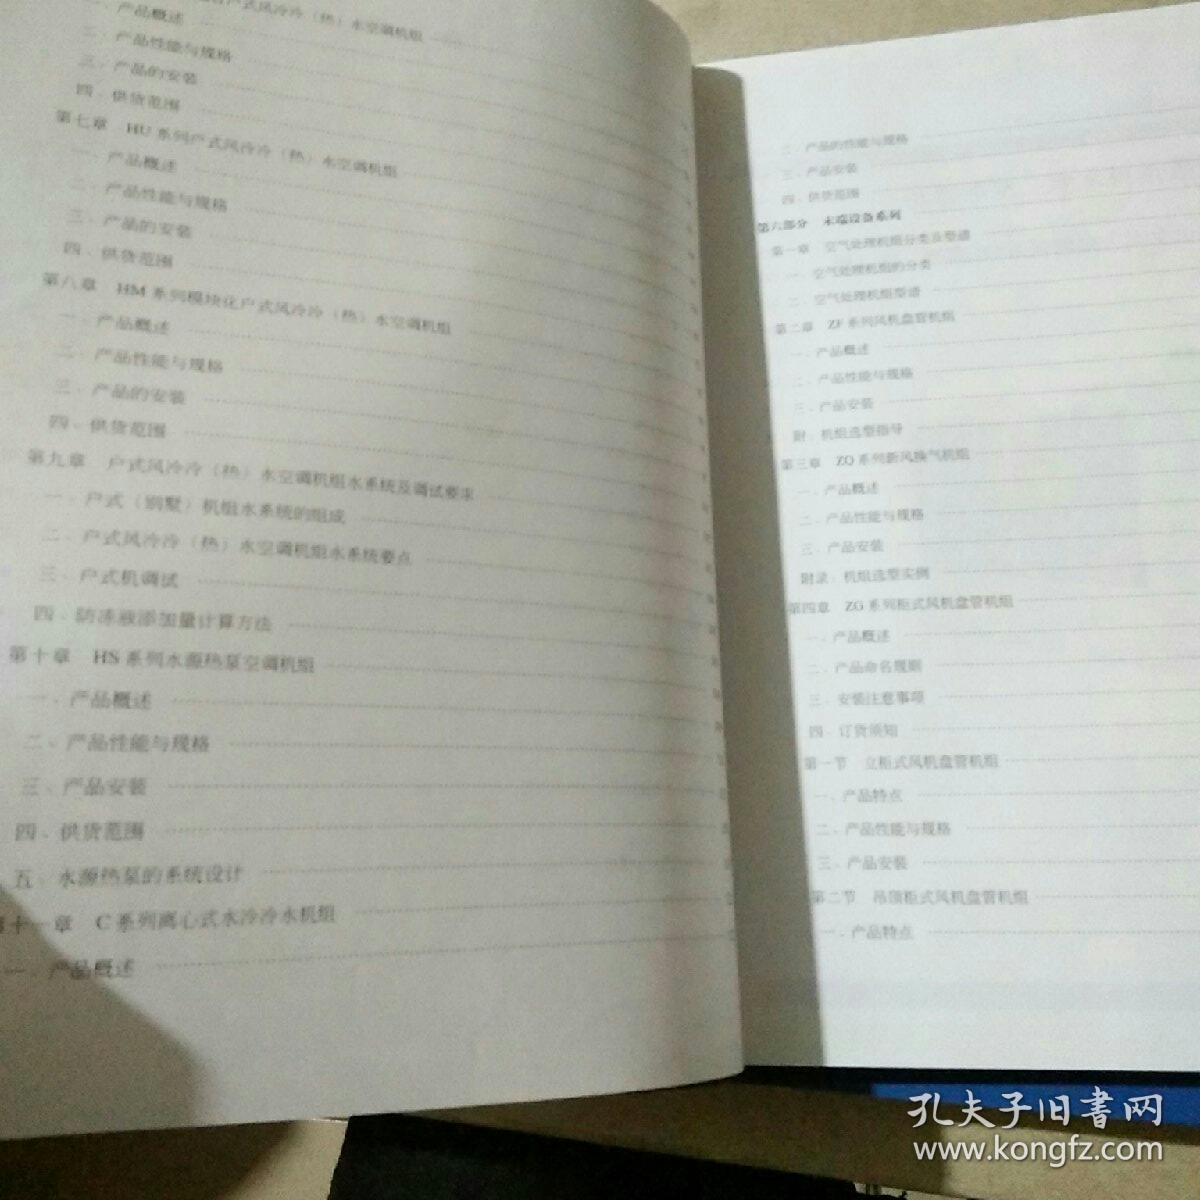 户式风冷冷（热）水空调机组
一、产品概述
二、产品性能与规格
三、产品的安装
四、供货范围
第七章 HU系列户式风冷冷（热）水空调机组
一、产品概述
二、产品性能与规格
三、产品的安装
四、供货范围
第八章 HM系列模块化户式风冷冷（热）水空调机组
一、产品概述
二、产品性能与规格
三、产品的安装
四、供货范围
第九章 户式风冷冷（热）水空调机组水系统及调试要求
一、户式（别墅）机组水系统的组成
二、户式风冷冷（热）水空调机组水系统要点
三、户式机调试
四、防冻液添加量计算方法
第十章 HS系列水源热泵空调机组
一、产品概述
二、产品性能与规格
三、产品安装
四、供货范围
五、水源热泵的系统设计
十一章 C系列离心式水冷冷水机组
一、产品概述
二、产品的性能与规格
三、产品安装
四、供货范围
第六部分 末端设备系列
第一章 空气处理机组分类及型谱
一、空气处理机组的分类
二、空气处理机组型谱
第二章 ZF系列风机盘管机组
一、产品概述
二、产品性能与规格
三、产品安装
附：机组选型指导
第三章 ZQ系列新风换气机组
一、产品概述
二、产品性能与规格
三、产品安装
附录：机组选型实例
第四章 ZG系列柜式风机盘管机组
一、产品概述
二、产品命名规则
三、安装注意事项
四、订货须知
第一节 立柜式风机盘管机组
一、产品特点
二、产品性能与规格
三、产品安装
第二节 吊顶柜式风机盘管机组
一、产品特点
孔夫子旧书网
www.kongfz.com